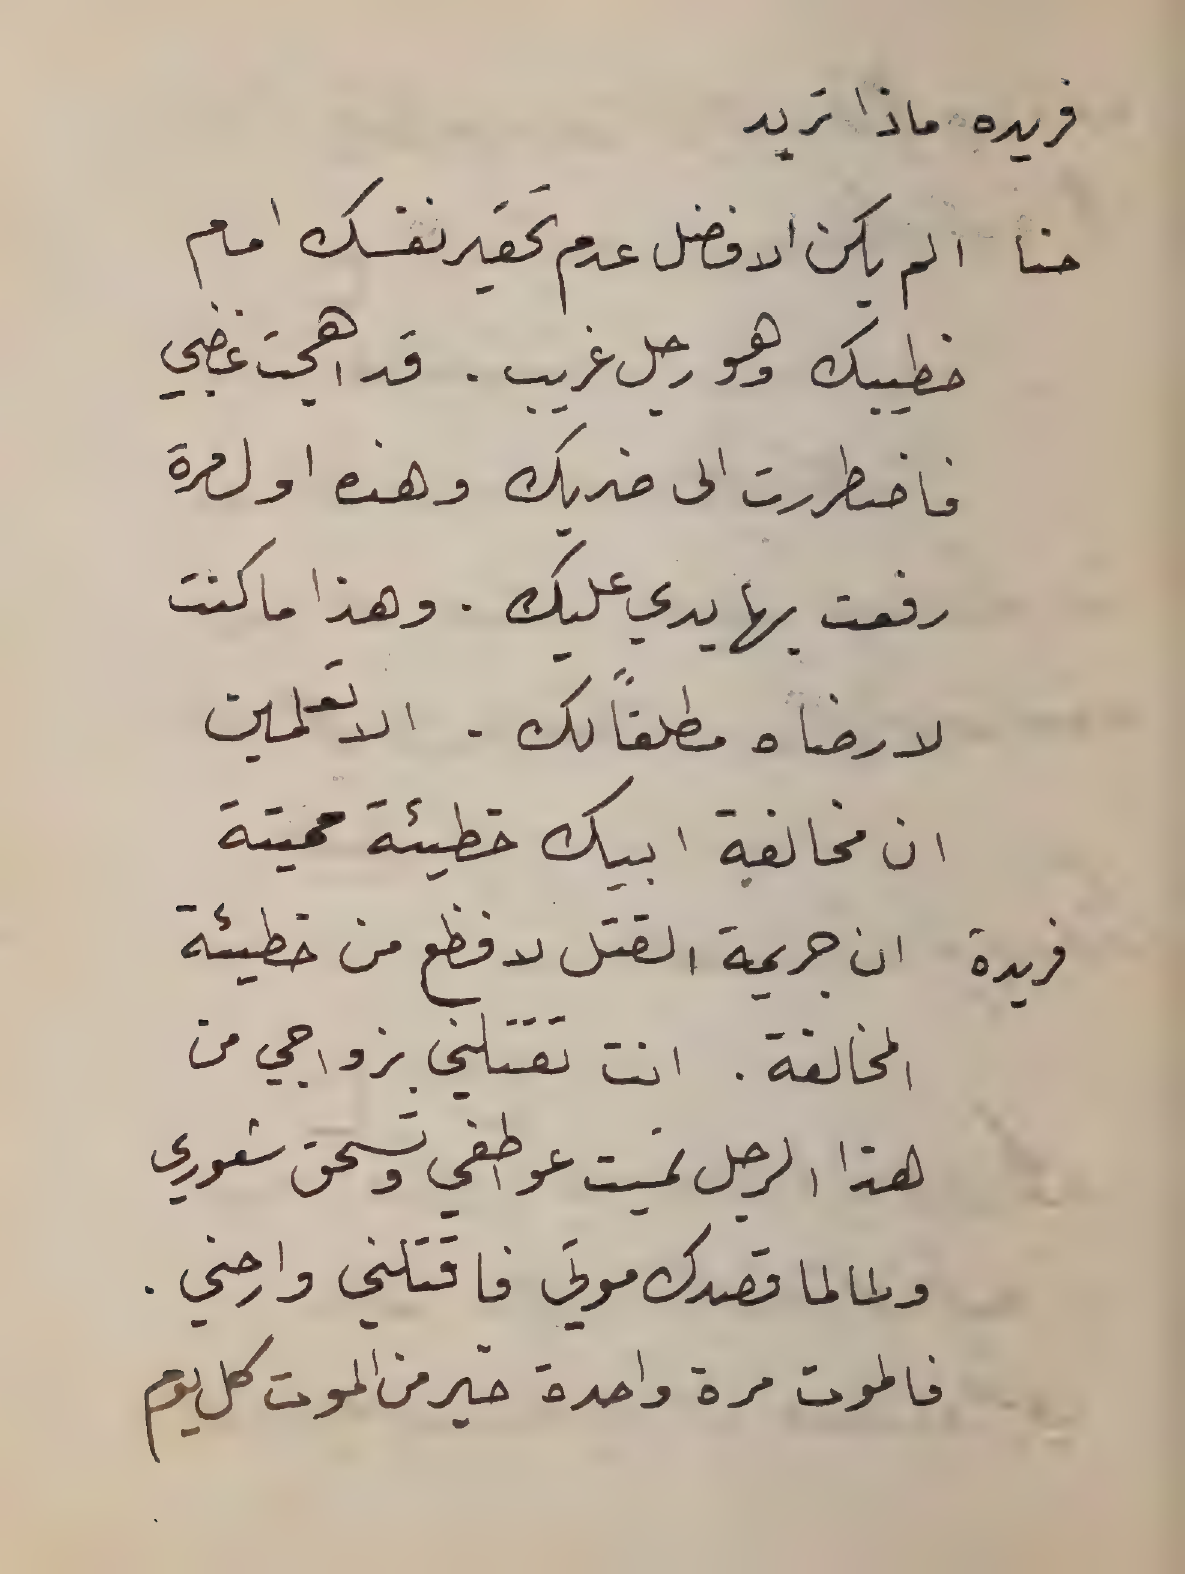 فريده ماذا تريد
حنا الم يكن الافضل عدم تحقير نفسك امام
خطيبك وهو رجل غريب . قد اهجت غضبي
فاضطررت الى ضربك وهذه اول مرة
رفعت بها يدي عليك . وهذا ما كنت
لارضاه مطلقاً لك . الا تعلمين
ان مخالفة ابيك خطيئة مميتة
فريدة ان جريمة القتل لافظع من خطيئة
المخالفة . انت تقتلني بزواجي من
هذا الرجل تميت عواطفي وتسحق شعوري
ولما قصدك موتي فاقتلني وارحني .
فالموت مرة واحدة خير من الموت كل يوم